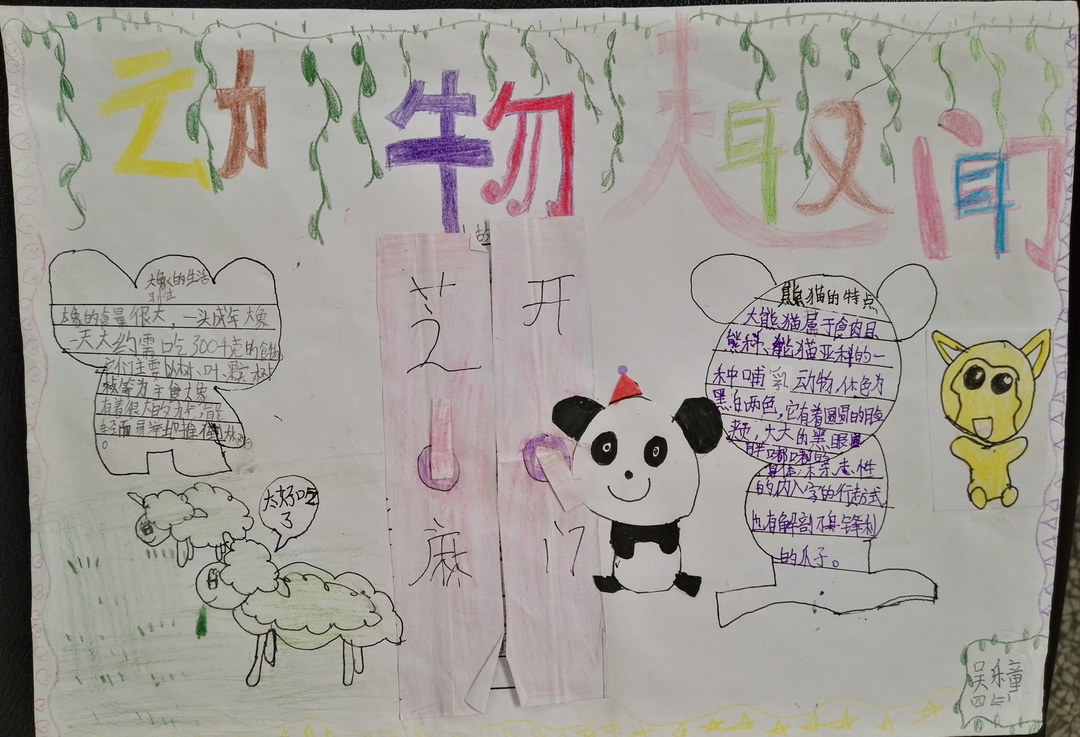 动物趣闻
大象的生活
习性
大象的食量很大，一头成年大象
一天大约需吃300千克的食物
它们主要以树叶、
等为主食大象
有着很大的力气，能
轻而易举地推倒大树。
太好吃
了
故
芝麻
开门
熊猫的特点
大熊猫属于食肉目
熊科、熊猫亚科的一
种哺乳动物，体色为
黑白两色，它有着圆圆的脸
颊，大大的黑眼圈
胖嘟嘟的
身体，标志性
的内八字的行走方式
也有解剖 锋利
的爪子。
吴乐童
四